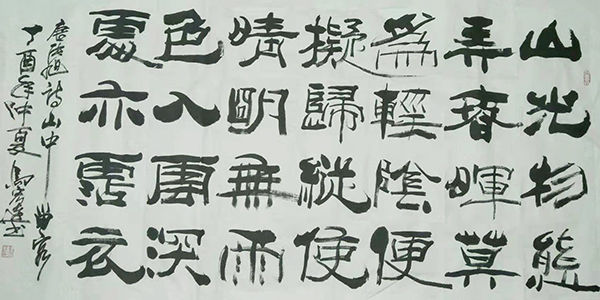 山光物態
弄春暉莫
為輕陰便
擬歸縱使
晴明無雨
色入雲深
處亦霑衣
唐張旭詩山中留客
丁酉年仲夏馬